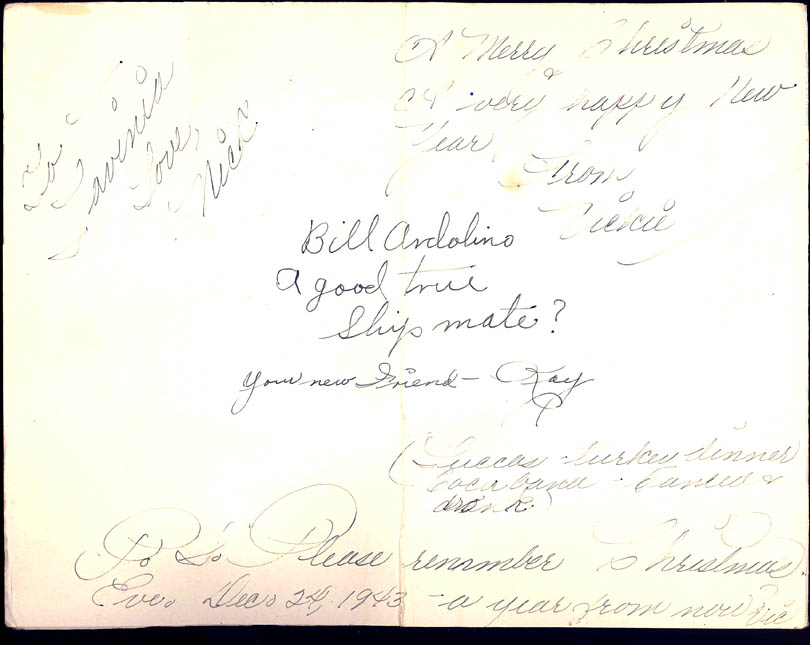 To
Lavinia
Love,
Nick
A Merry Christmas
& A very happy New
Year
From
Vickie
Bill Ardolino
A good true
Ship mate?
Your new Friend - Ray
P
(Luccas - turkey dinner
Coca - Danced &
drank)
P. S. Please remember Christmas
Eve. Dec. 24, 1943 - a year from now Vic